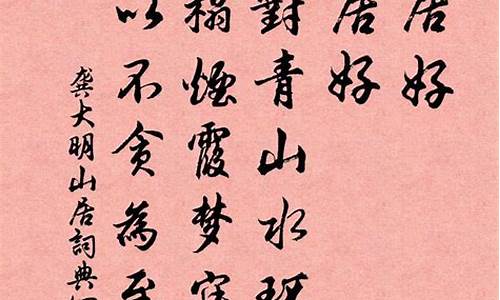 居好
居好
對青山水
榻煙霞梦
以不貪為至
龔大明山居詞典